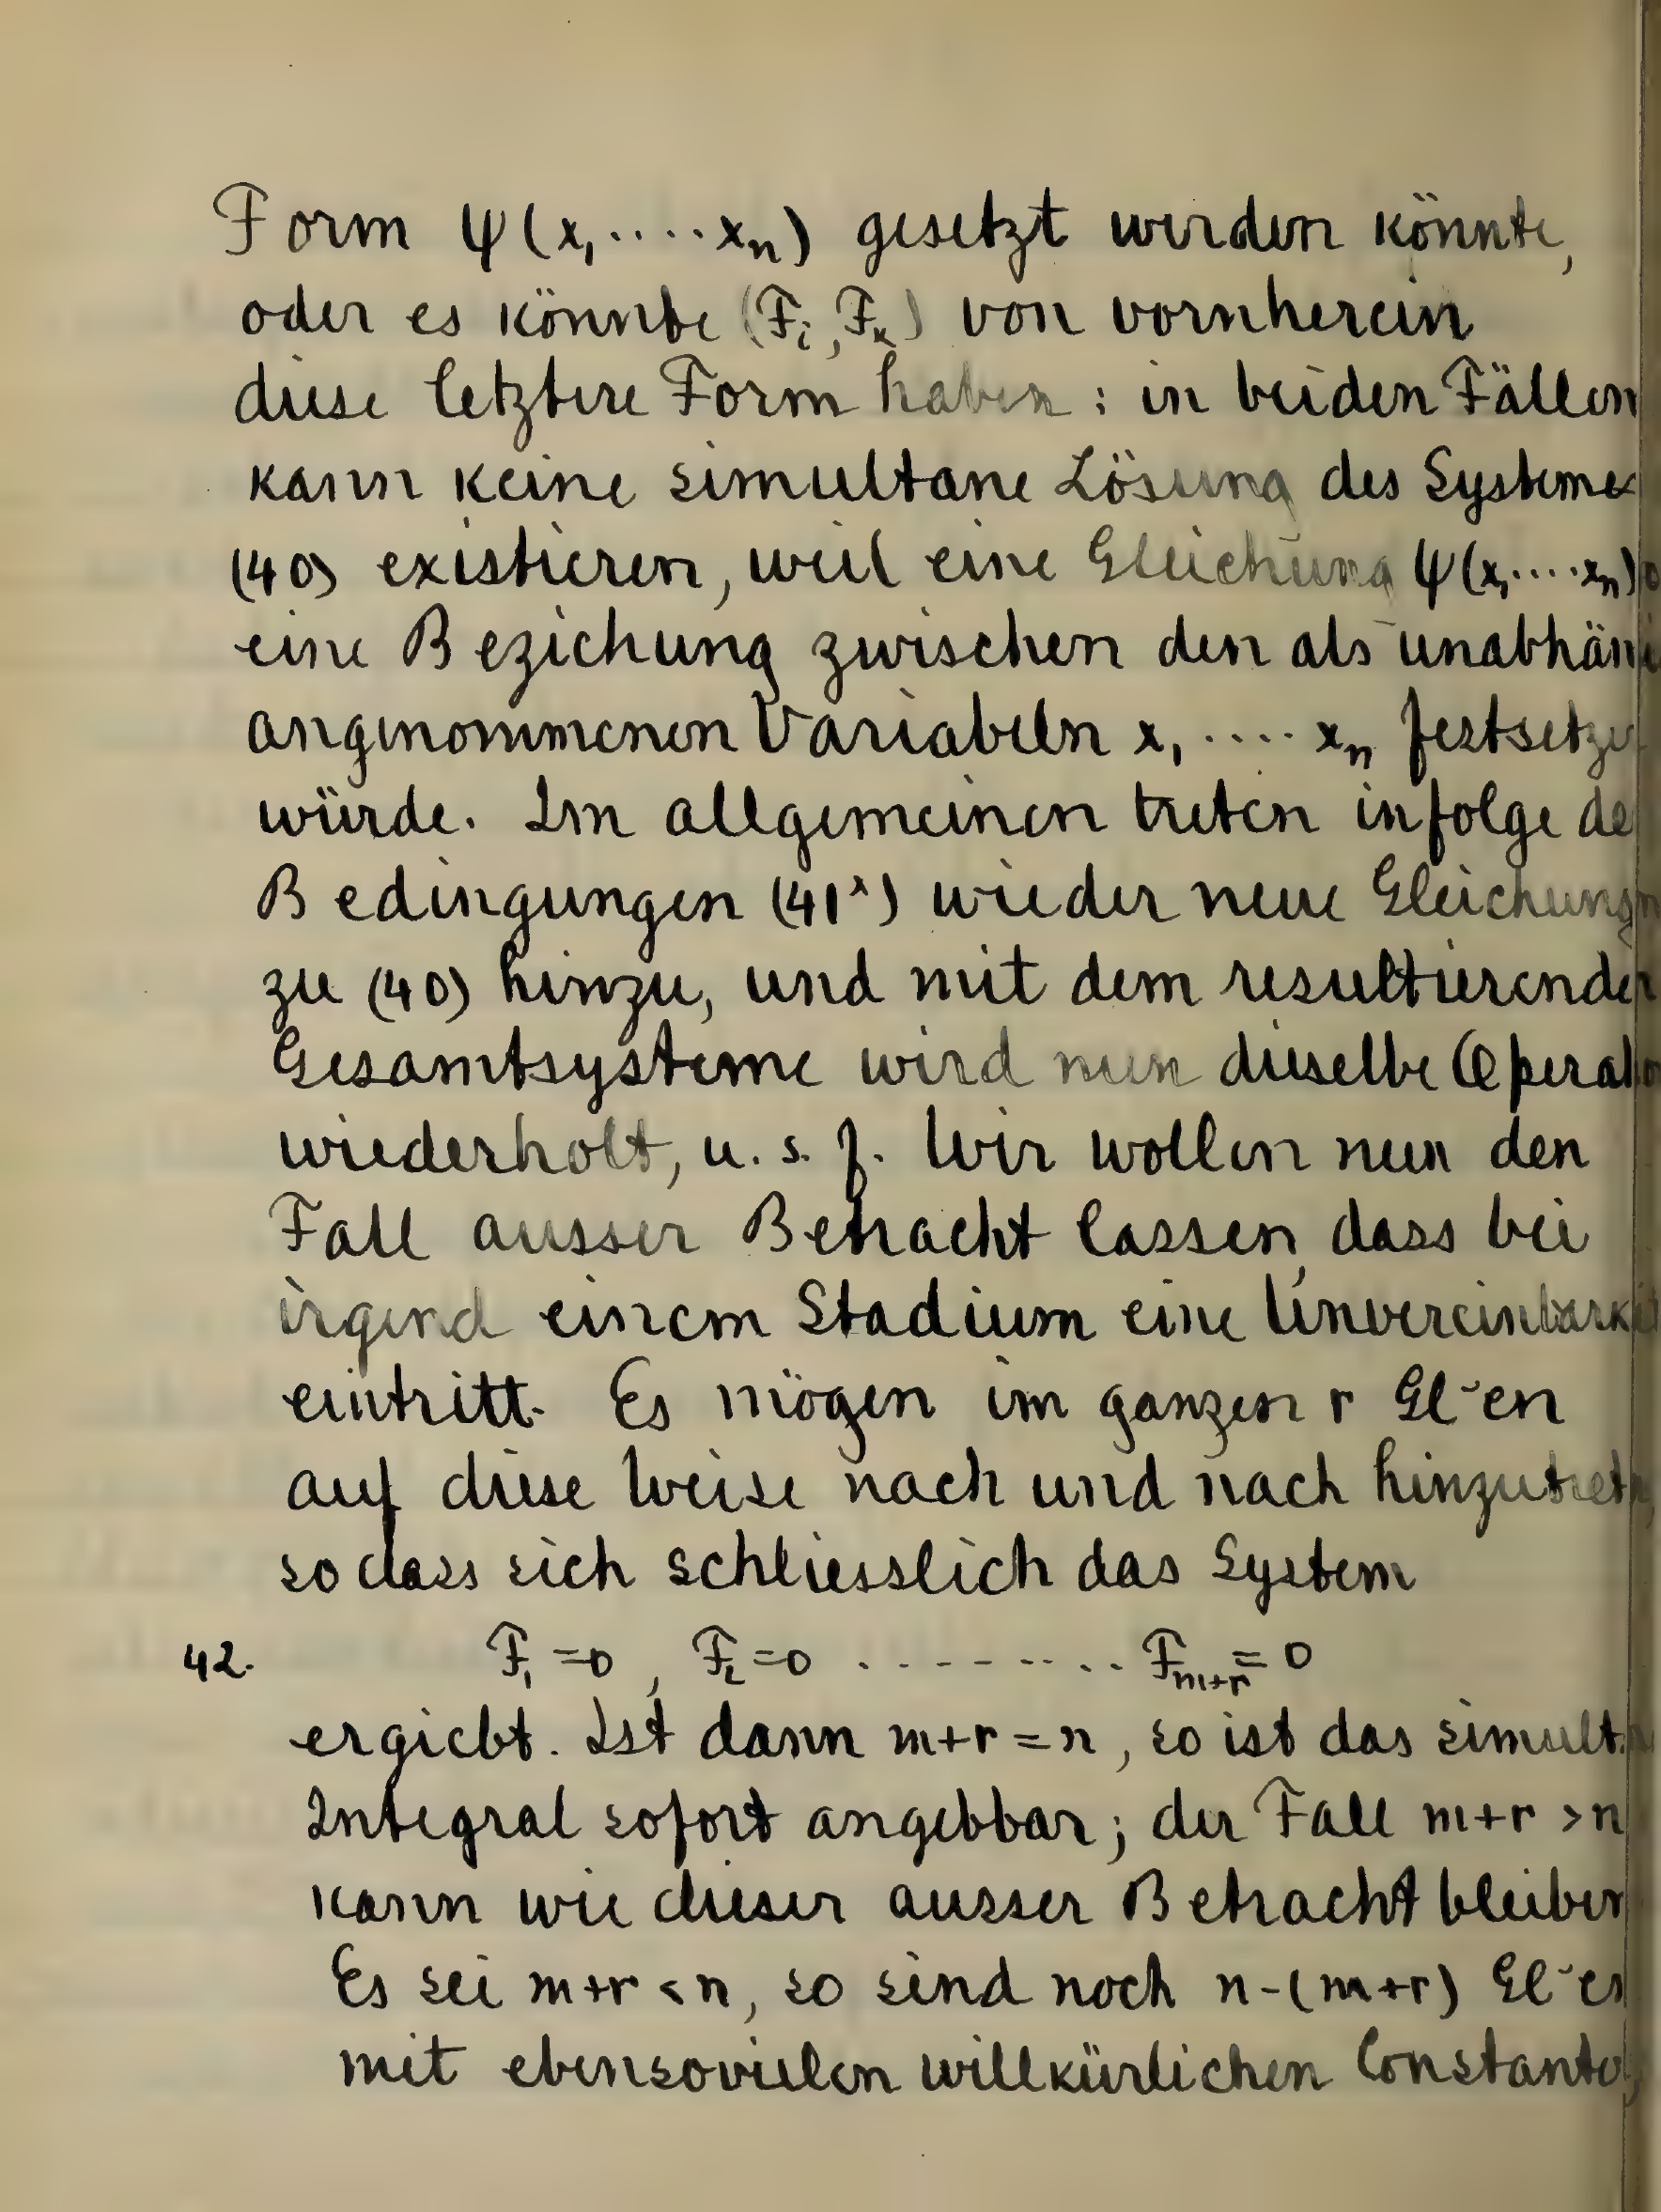 Form ψ(x₁.....xₙ) gesetzt werden könnte,
oder es könnte (Fᵢ, Fₖ) von vornherein
diese letztere Form haben : in beiden Fällen
kann keine simultane Lösung des Systemes
(40) existieren, weil eine Gleichung ψ(x₁.....xₙ)=0
eine Beziehung zwischen den als unabhäng
angenommenen Variabeln x₁ ..... xₙ festsetzen
würde. Im allgemeinen treten infolge de
Bedingungen (41ˣ) wieder neue Gleichungen
zu (40) hinzu, und mit dem resultierenden
Gesamtsysteme wird nun dieselbe Operation
wiederholt, u. s. f. Wir wollen nun den
Fall ausser Betracht lassen, dass bei
irgend einem Stadium eine Unvereinbarkeit
eintritt. Es mögen im ganzen r Gl˘en
auf diese Weise nach und nach hinzutreten,
so dass sich schliesslich das System
42. F₁ =0 , F₂ =0 ......... Fₘ₊ᵣ = 0
ergiebt. Ist dann m+r = n, so ist das simult.
Integral sofort angebbar; der Fall m+r > n
kann wie dieser ausser Betracht bleiben
Es sei m+r < n, so sind noch n-(m+r) Gl˘en
mit ebensovielen willkürlichen Constanten,